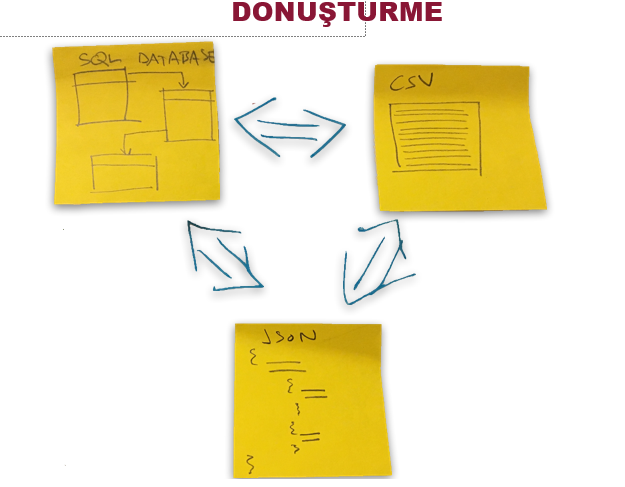 DONUŞTURME
SQL DATABASE
CSV
JSON
{
{
}
{
}
}